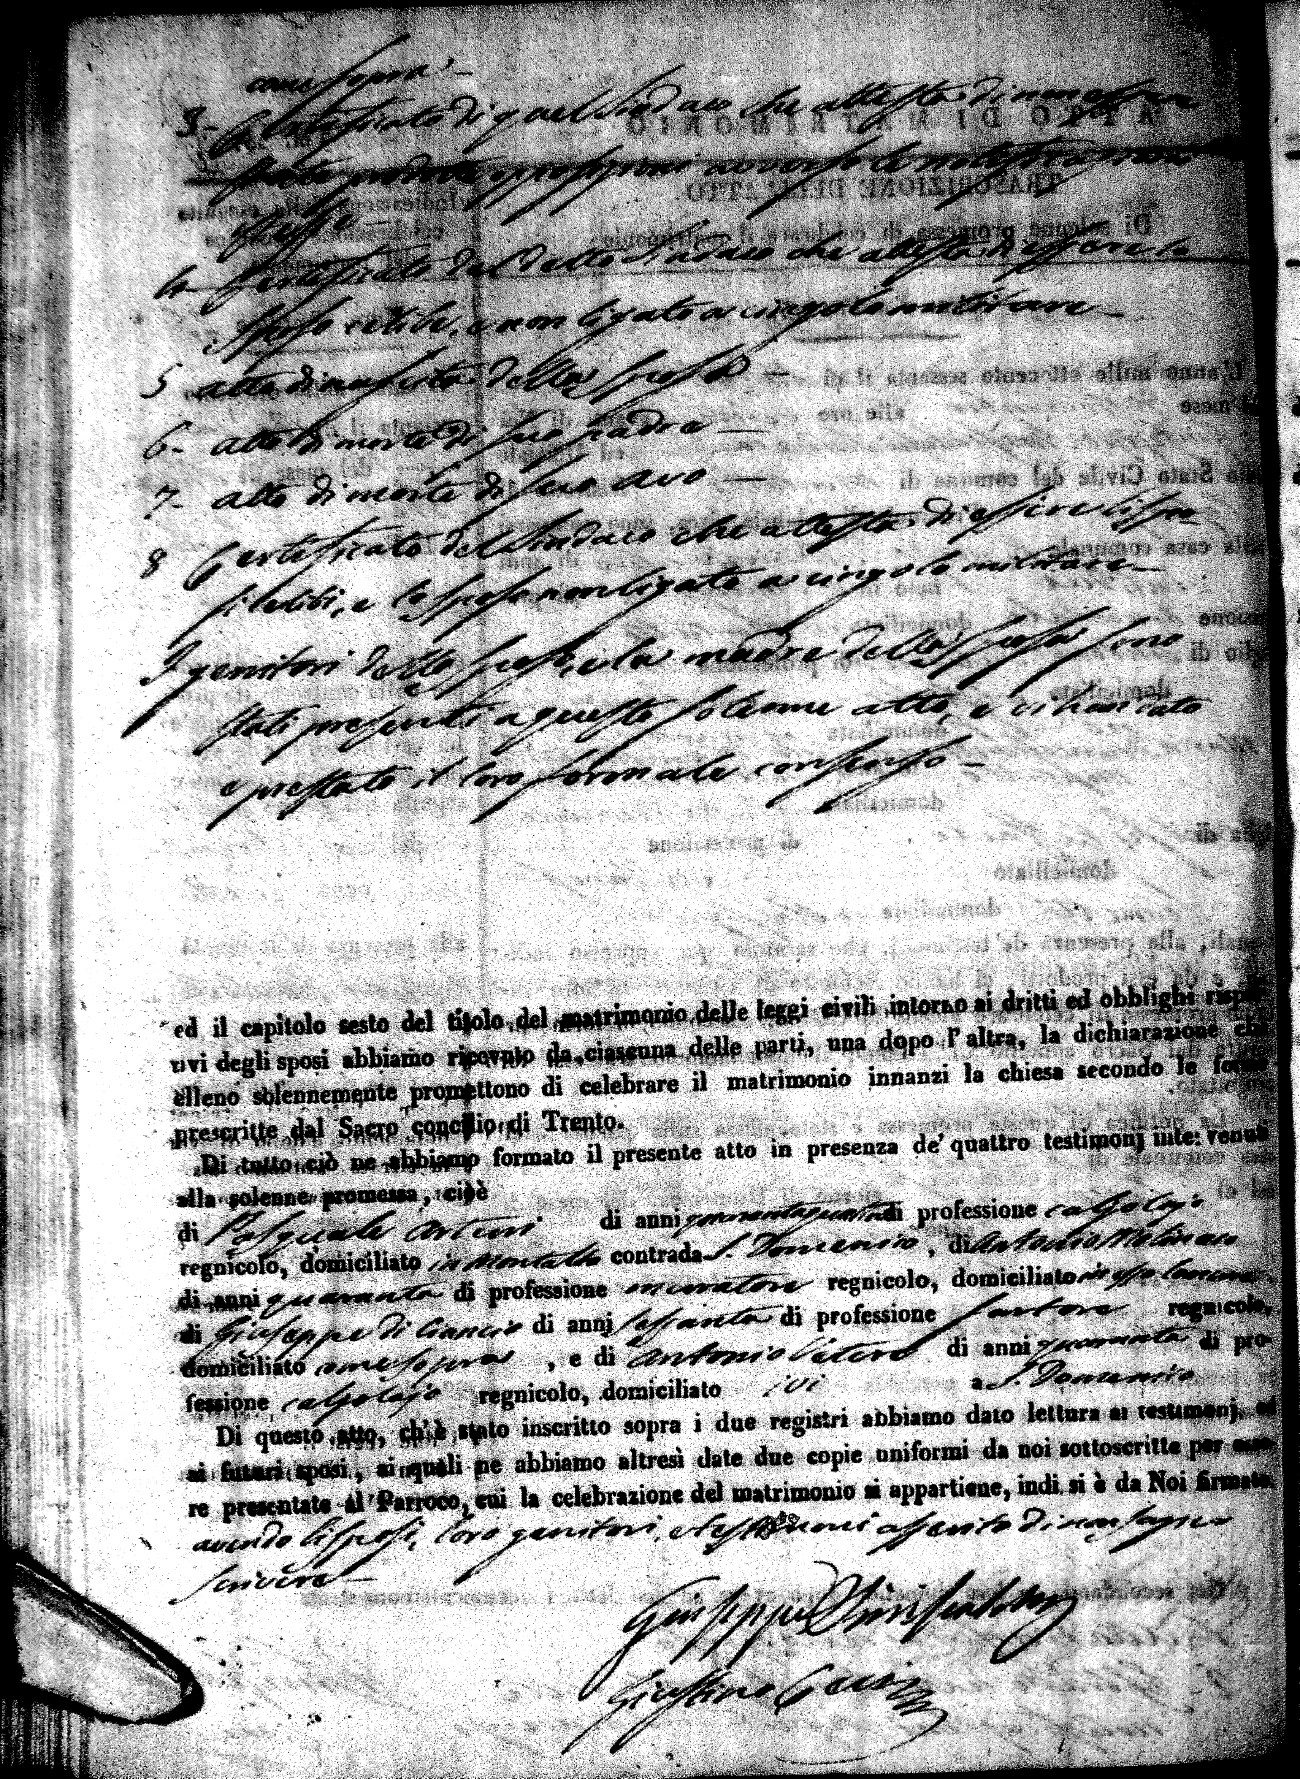 come sopra —
3- Certificato di quel Sindaco che attesta di non essere
state prodotte opposizioni avverso le notificazioni
stesse —
4- Certificato del detto Sindaco che attesta di essere lo
sposo celibe, e non ligato a cingolo militare —
5 atto di nascita della sposa —
6- atto di morte di suo padre —
7- atto di morte di suo avo —
8 Certificato del Sindaco che attesta di essere li spo-
si celibi, e lo sposo non ligato a cingolo militare —
I genitori dello sposo, e la madre della sposa sono
stati presenti a questo solenne atto, e ci han dato
e prestato il loro formale consenso —
ed il capitolo sesto del titolo del matrimonio delle leggi civili intorno ai dritti ed obblighi rispet-
tivi degli sposi abbiamo ricevuto da ciascuna delle parti, una dopo l'altra, la dichiarazione che
elleno solennemente promettono di celebrare il matrimonio innanzi la chiesa secondo le forme
prescritte dal Sacro concilio di Trento.
Di tutto ciò ne abbiamo formato il presente atto in presenza de' quattro testimonj intervenuti
alla solenne promessa, cioè
di Pasquale Arturi di anni quarantaquattro di professione calzolajo
regnicolo, domiciliato in Montalto contrada S. Domenico, di Antonio Molinaro
di anni quaranta di professione muratore regnicolo, domiciliato in esso Comune
di Giuseppe di Ciancio di anni sessanta di professione sartore regnicolo,
domiciliato come sopra, e di Antonio di anni quaranta di pro-
fessione calzolajo regnicolo, domiciliato ivi a S. Domenico
Di questo atto, ch'è stato inscritto sopra i due registri abbiamo dato lettura ai testimonj, ed
ai futuri sposi, ai quali ne abbiamo altresì date due copie uniformi da noi sottoscritte per esse-
re presentate al Parroco, cui la celebrazione del matrimonio si appartiene, indi si è da Noi firmato,
avendo li sposi, loro genitori, e testimoni asserito di non sapere
scrivere —
Giuseppe
Giustino